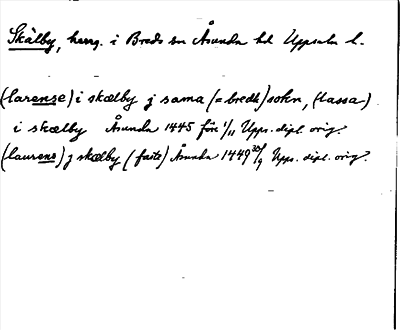 Skälby, herrg. i Breds sn Åsunda hd Uppsala l.
(larense) i skælby j sama (= bredh) sokn, (lassa)
i skælby Åsunda 1445 före 1/11 Upps. dipl. orig.
(laurens) j skælby (faste) Åsunda 1449 25/9 Upps. dipl. orig.